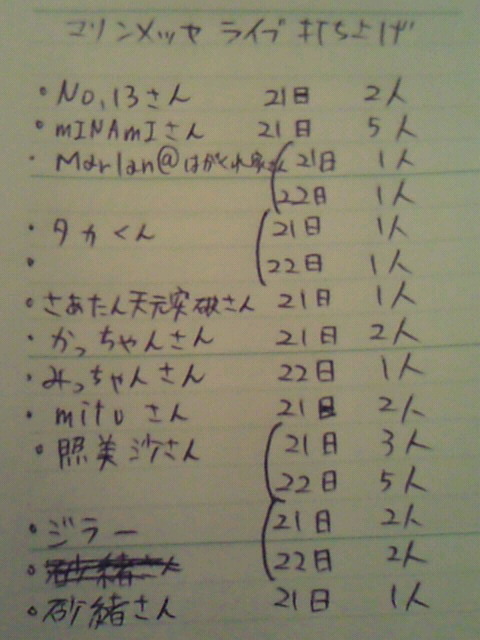 マリンメッセ ライブ 打ち上げ
・No,13さん 21日 2人
・mINAmIさん 21日 5人
・Marlan@はがくれ家さん 21日 1人
22日 1人
・タカくん 21日 1人
・ 22日 1人
・さあたん天元突破さん 21日 1人
・かっちゃんさん 21日 2人
・みっちゃんさん 22日 1人
・mitu さん 21日 2人
・照美沙さん 21日 3人
22日 5人
・ジラー 21日 2人
・砂緒さん 22日 2人
・砂緒さん 21日 1人